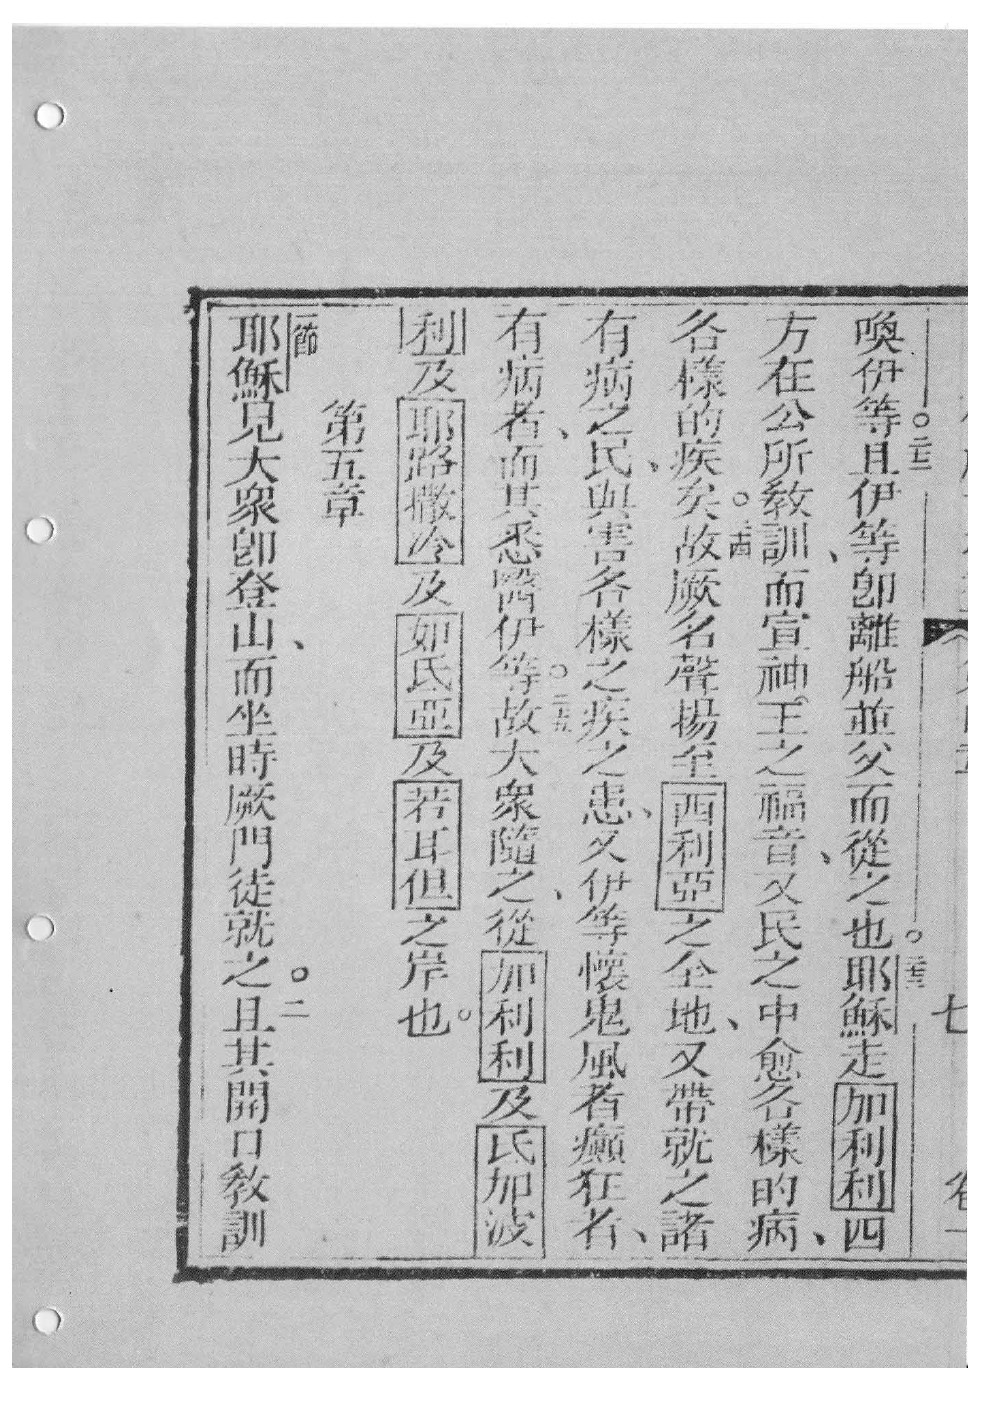 喚伊等。二十二且伊等卽離船並父而從之也。二十三耶穌走加利利四
方在公所敎訓、而宣神王之福音、又民之中愈各樣的病、
各樣的疾矣。二十四故厥名聲揚至西利亞之全地、又帶就之諸
有病之民、與害各樣之疾之患、又伊等懷鬼風者癲狂者、
有病者、而其悉醫伊等。二十五故大衆隨之、從加利利及氐加波
利及耶路撒冷及如氐亞及若耳但之岸也。
第五章
一節耶穌見大衆卽登山、而坐時厥門徒就之。二且其開口敎訓